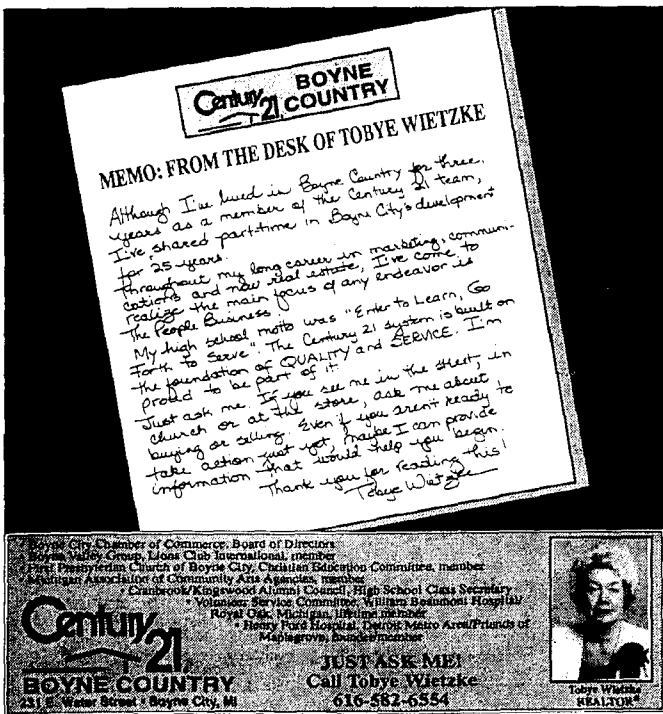 Century 21
BOYNE
COUNTRY
MEMO: FROM THE DESK OF TOBYE WIETZKE
Although I've lived in Boyne Country for three
years as a member of the Century 21 team,
I've shared part-time in Boyne City's development
for 25 years.
Throughout my long career in marketing, communi-
cations and now real estate, I've come to
realize the main focus of any endeavor is
The People Business.
My high school motto was "Enter to Learn, Go
Forth to Serve". The Century 21 system is built on
the foundation of QUALITY and SERVICE. I'm
proud to be part of it.
Just ask me. If you see me in the street, in
church or at the store, ask me about
buying or selling. Even if you aren't ready to
take action just yet, maybe I can provide
information that would help you begin.
Thank you for reading this!
Tobye Wietzke
Boyne City Chamber of Commerce, Board of Directors
Boyne Valley Group, Lions Club International, member
First Presbyterian Church of Boyne City, Christian Education Committee, member
Michigan Association of Community Arts Agencies, member
• Cranbrook/Kingswood Alumni Council, High School Class Secretary
• Volunteer Service Committee, William Beaumont Hospital/
Royal Oak, Michigan, lifetime member
• Henry Ford Hospital, Detroit Metro Area/Friends of
Maplegrove, founder/member
Century 21
BOYNE COUNTRY
231 E. Water Street • Boyne City, MI
JUST ASK ME!
Call Tobye Wietzke
616-582-6554
Tobye Wietzke
REALTOR®